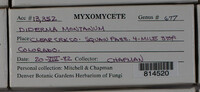 Acc # 13,352 MYXOMYCETE Genus # 677
DIDERMA MONTANUM
Place CLEAR CREEK CO. SQUAW PASS. 4-MILE STOP
COLORADO.
Date 20-VIII-82 Collector CHAPMAN
Personal collection Mitchell & Chapman
Denver Botanic Gardens Herbarium of Fungi
814520